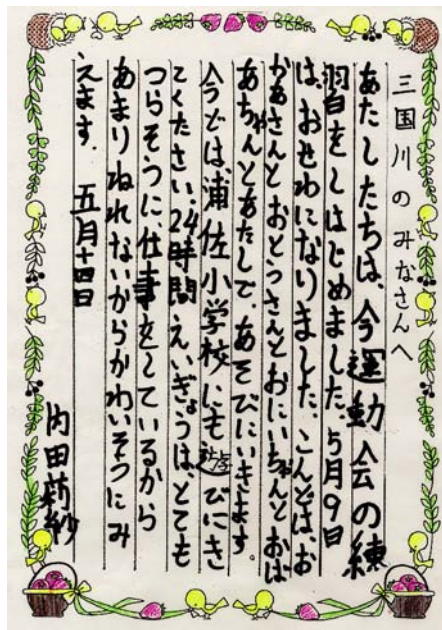 三国川のみなさんへ
あたしたちは、今運動会の練
習をしはじめました。5月9日
は、おせわになりました。こんどは、お
かあさんとおとうさんとおにいちゃんとおば
あちゃんとあたしで、あそびにいきます。
今どは、浦佐小学校にも遊びにき
てください。24時間えいぎょうは、とても
つらそうに、仕事をしているから
あまりねれないからかわいそうにみ
えます。 五月十四日
内田莉紗